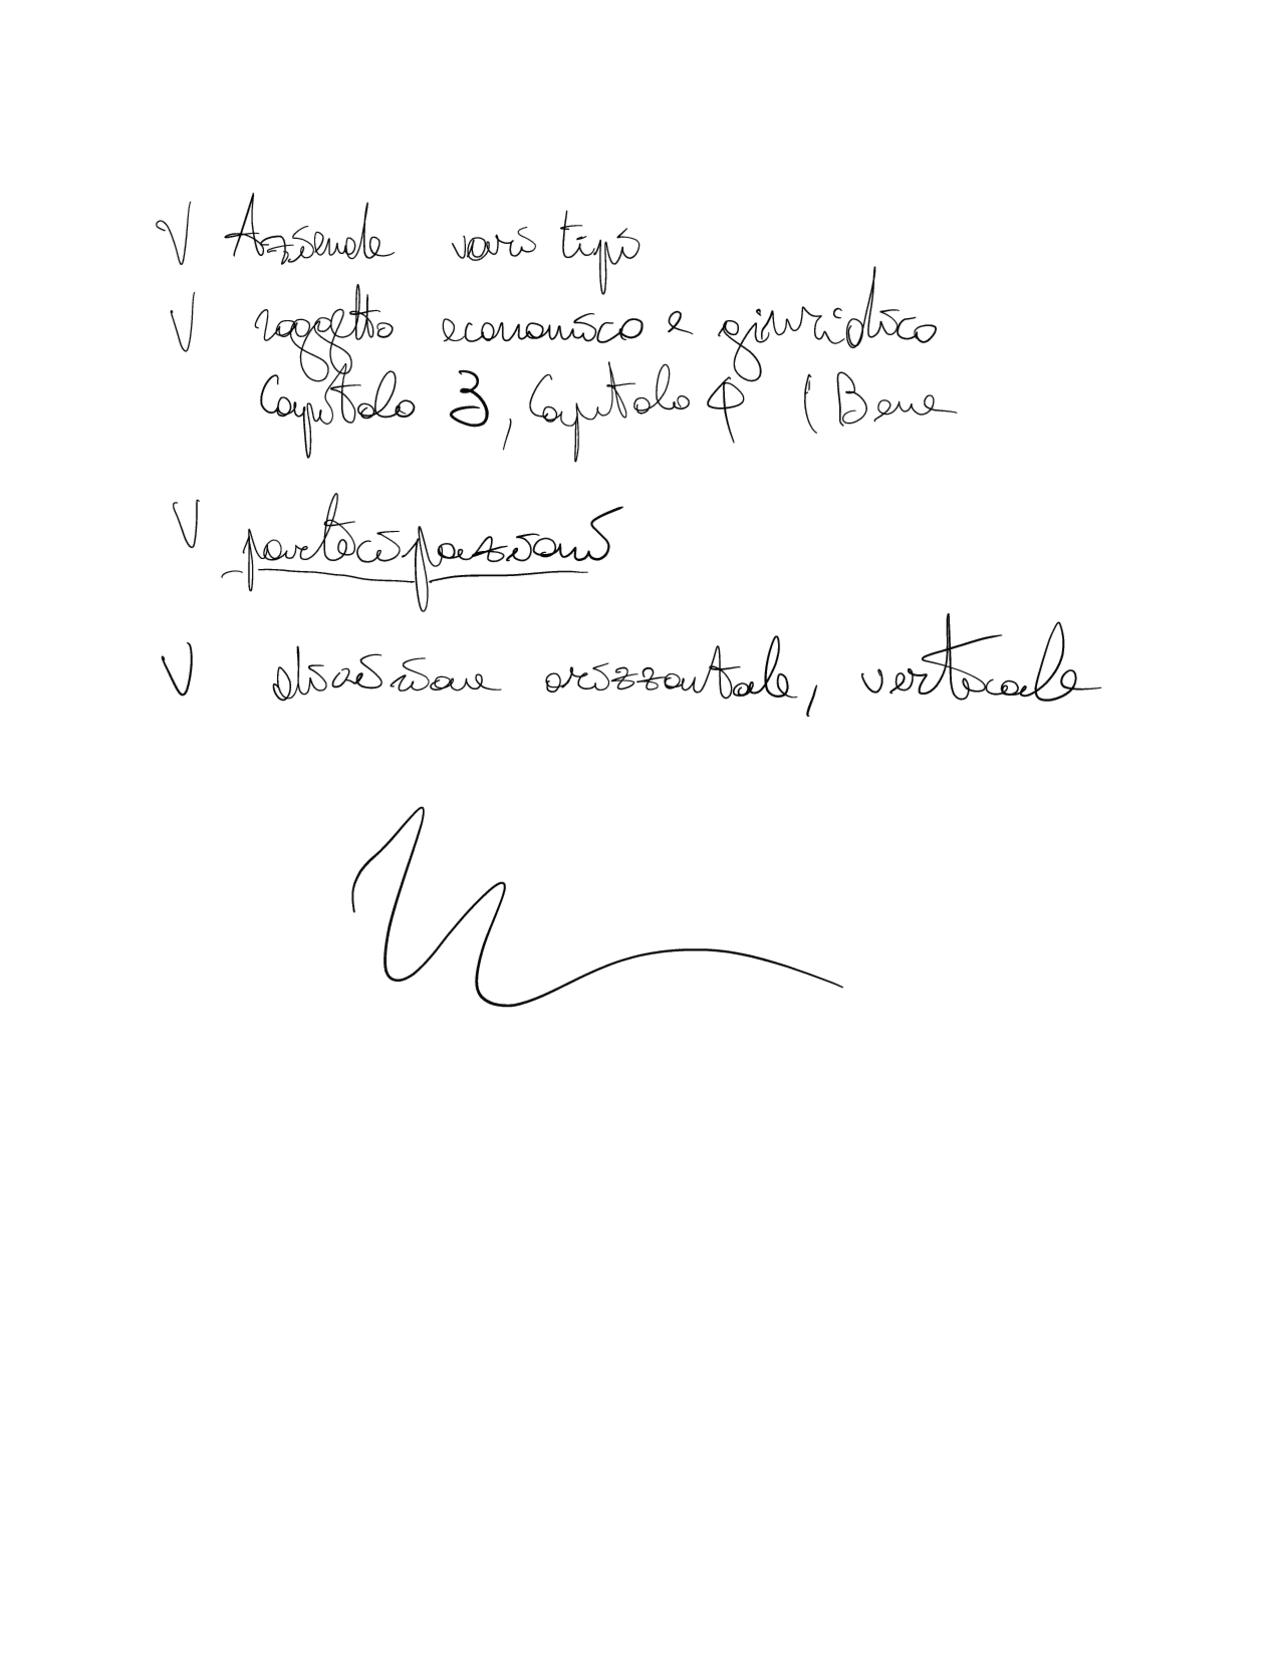 V Aziende vari tipi
V soggetto economico e giuridico
Capitolo 3, Capitolo 4 (Bene
V partecipazioni
V divisione orizzontale, verticale